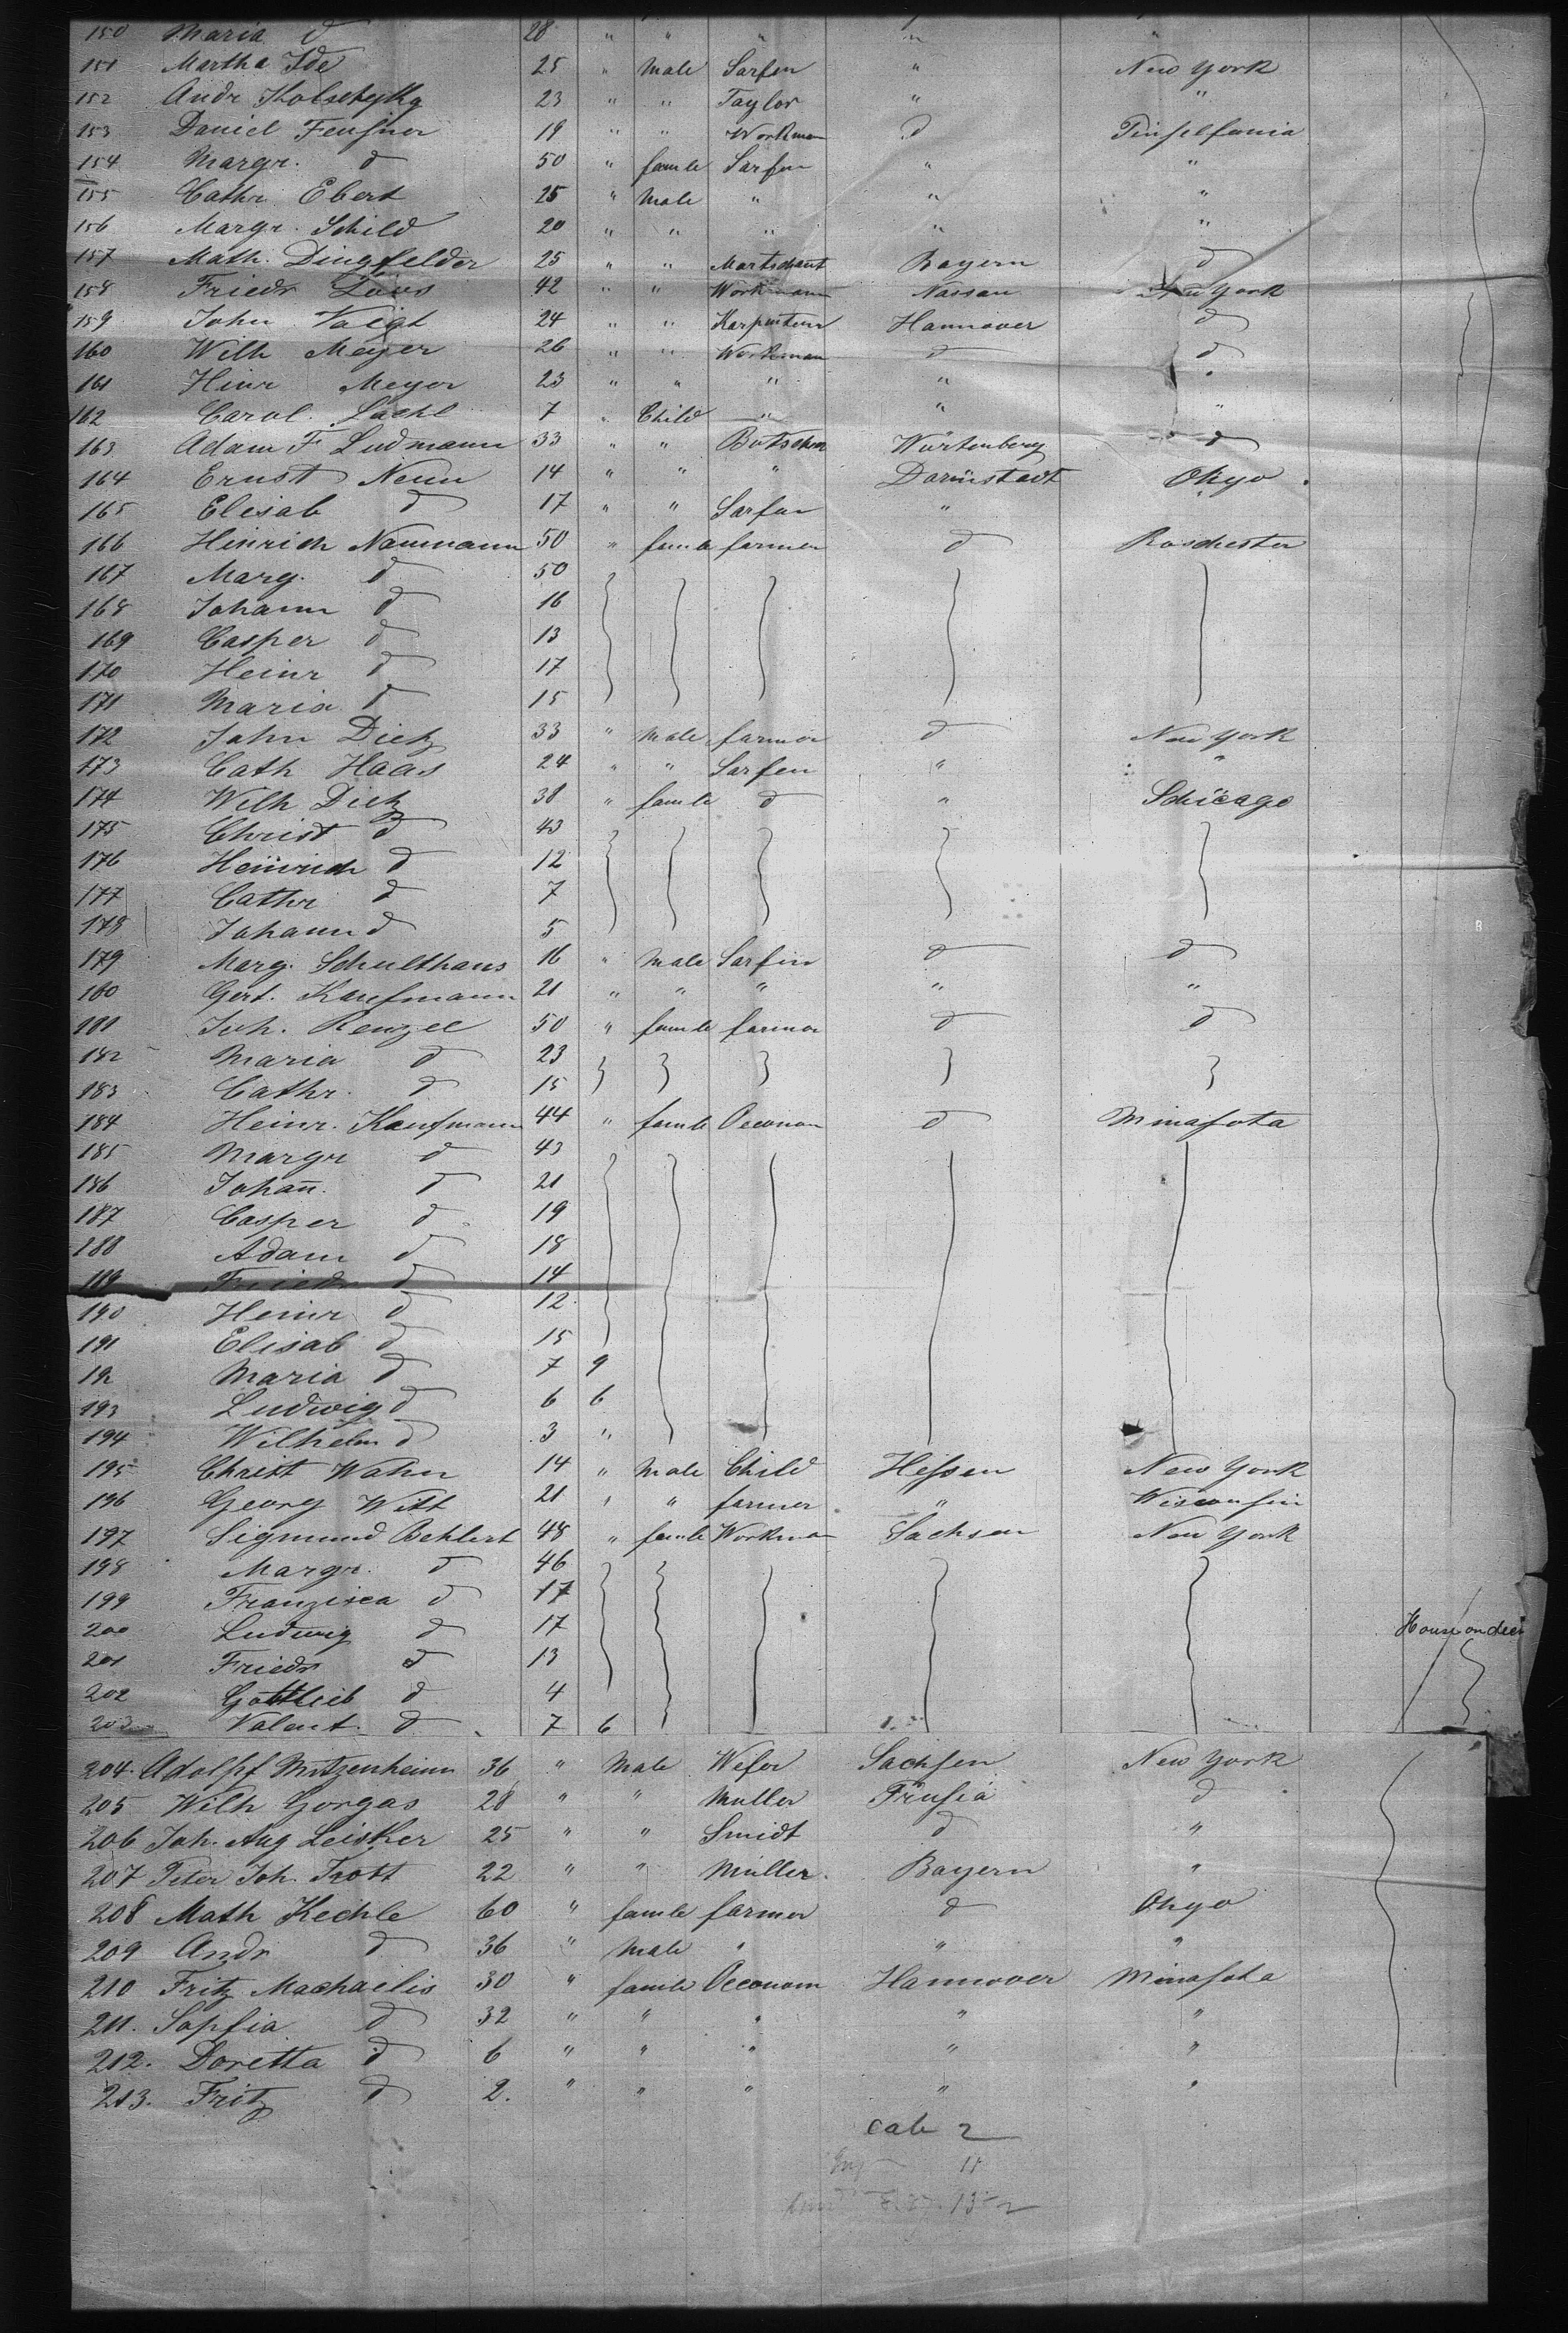 150 Maria d 28 " " " " "
151 Martha Ide 25 " Male Sarfen " New York
152 Andr 23 " " Taylor " "
153 Daniel Feusner 19 " " Workman d Pinselfania
154 Margr. d 50 " famle Sarfen " "
155 Cathr. Ebert 25 " Male " " "
156 Margr. Schild 20 " " " " "
157 Math. Dingfelder 25 " " Martschant Bayern d
158 Friedr 42 " " Workmann Nassau New York
159 John Voigt 24 " " Karpenteur Hannover d
160 Wilh Meyer 26 " " Workman d d
161 Hinr Meyer 23 " " " " "
162 Carol. 7 " Child " " "
163 Adam F. Ludmann 33 " " Butscher Würtenberg d
164 Ernst Neun 14 " " " Darmstadt Ohyo
165 Elisab d 17 " " Sarfen "
166 Hinrich Naumann 50 " famle farmer d Roschester
167 Marg. d 50
168 Johann d 16
169 Casper d 13
170 Heinr d 17
171 Maria d 15
172 John Dietz 33 " Male farmer d New York
173 Cath Haas 24 " " Sarfen " "
174 Wilh Dietz 38 " famle d " Schicago
175 Christ d 43
176 Heinrich d 12
177 Cathr d 7
178 Johann d 5
179 Marg. Schulthaus 16 " Male Sarfin d d
180 Gert. Kaufmann 21 " " " " "
181 Joh. Renzel 50 " famle farmer d d
182 Maria d 23
183 Cathr. d 15
184 Heinr. Kaufmann 44 " famle Oeconom d Minasota
185 Margr d 43
186 Johañ. d 21
187 Casper d 19
188 Adam d 18
189 Friedr d 14
190 Heinr d 12
191 Elisab d 15
192 Maria d 7 9
193 Ludwig d 6 6
194 Wilhelm d 3 "
195 Christ Wahn 14 " Male Child Hessen New York
196 Georg Witt 21 " " farmer " Wisconsin
197 Sigmund Behlert 48 " famle Workman Sachsen New York
198 Margr. d 46
199 Franzisca d 17
200 Ludwig d 17
House on deck
201 Friedr d 13
202 Gottlieb d 4
203 Valent. d 7 6
204. Adolpf Motzenheim 36 " Male Wefer Sachsen New York
205 Wilh Gorgas 28 " " Muller Prusia d
206 Joh. Aug Leisker 25 " " Smidt d "
207 Peter Joh. Trott 22 " " Müller. Bayern "
208 Math Kechle 60 " famle farmer d Ohyo
209 Andr d 36 " Male " " "
210 Fritz Machaelis 30 " famile Oeconom Hannover Minasota
211. Sopfia d 32 " " " " "
212. Doretta d 6 " " " " "
213. Fritz d 2. " " " " "
cab 2
11